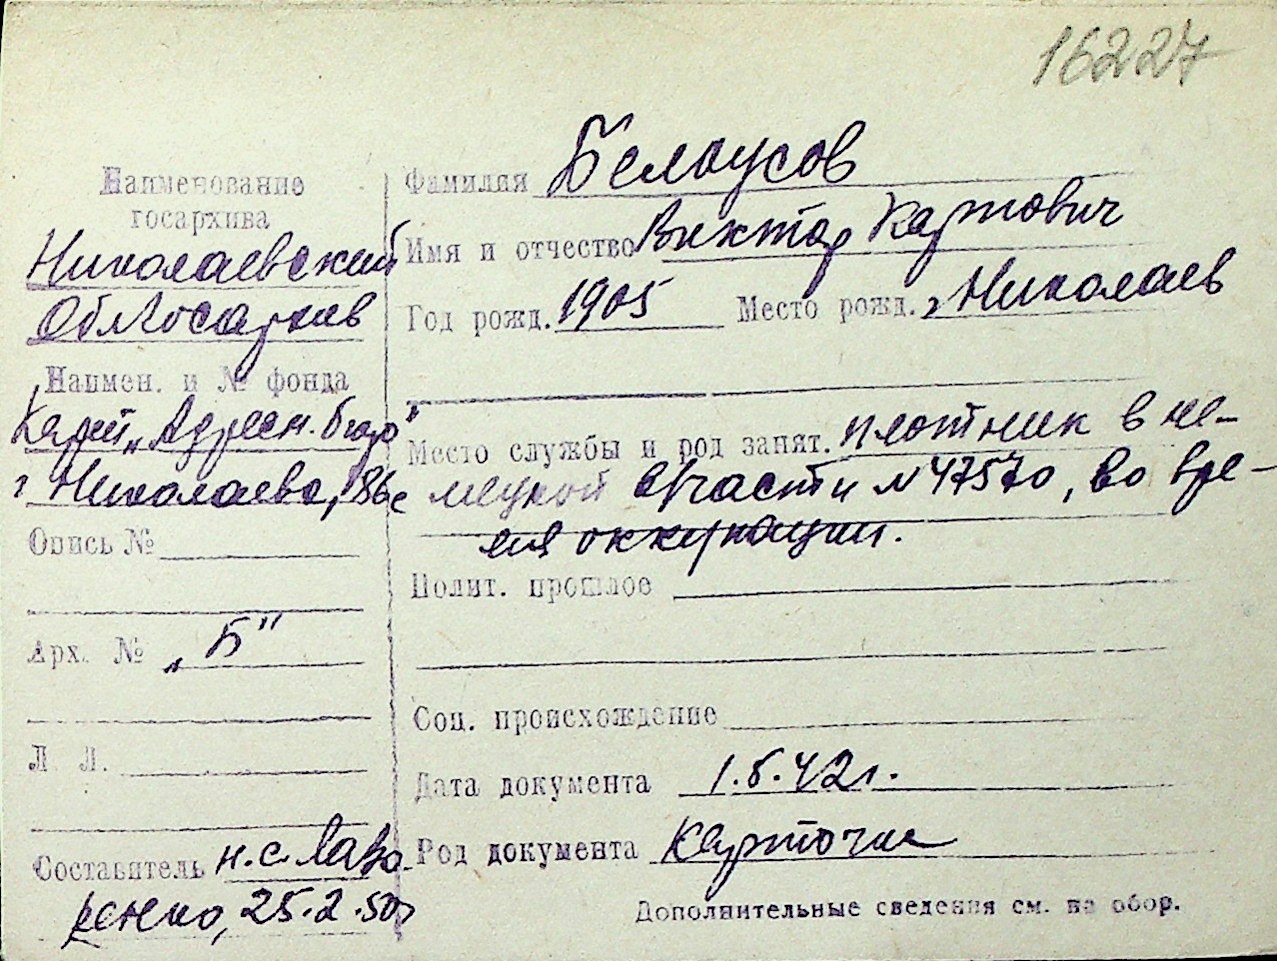 16227
Наименование
госархива
Николаевский
Облгосархив
Наимен. и № фонда
Карт. „Адресн. бюро"
г Николаева,
Опись №
Арх. № „Б"
Л. Л.
Составитель н.с. Лавр
енко, 25.2.50г
Фамилия Белоусов
Имя и отчество Виктор Карпович
Год рожд. 1905 Место рожд. г Николаев
Место службы и род занят. плотник в не-
мецкой в/части №47570, во вре-
мя оккупации.
Полит. прошлое
Соц. происхождение
Дата документа 1.6.42г.
Род документа карточка
Дополнительные сведения см. на обор.